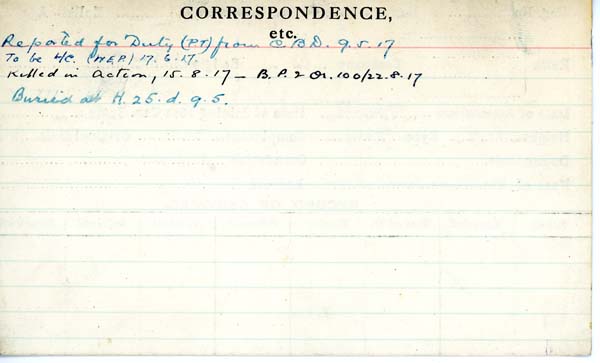 CORRESPONDENCE,
etc.
Reported for Duty (PT) from C.B.D. 9.5.17
To be L/C. (W.E.P.) 17.6.17.
Killed in Action, 15.8.17 — B.P.2 Or. 100/22.8.17
Buried at H.25.d.9.5.